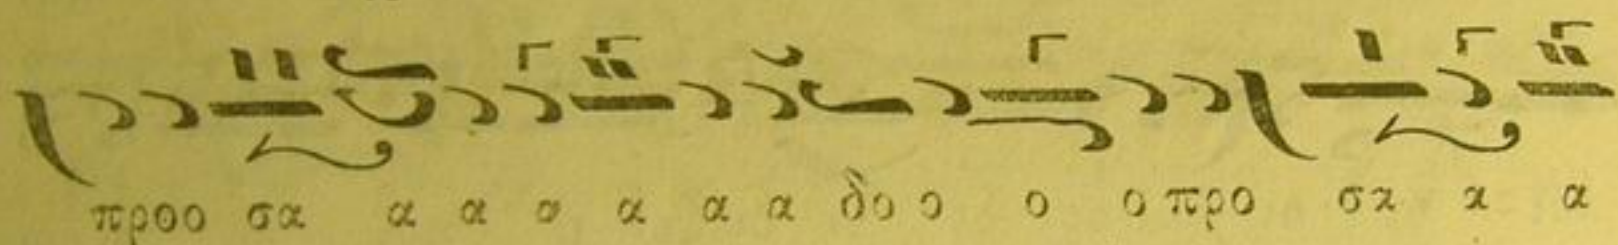 προο σα α α α α α α δο ο ο ο προ σα α α